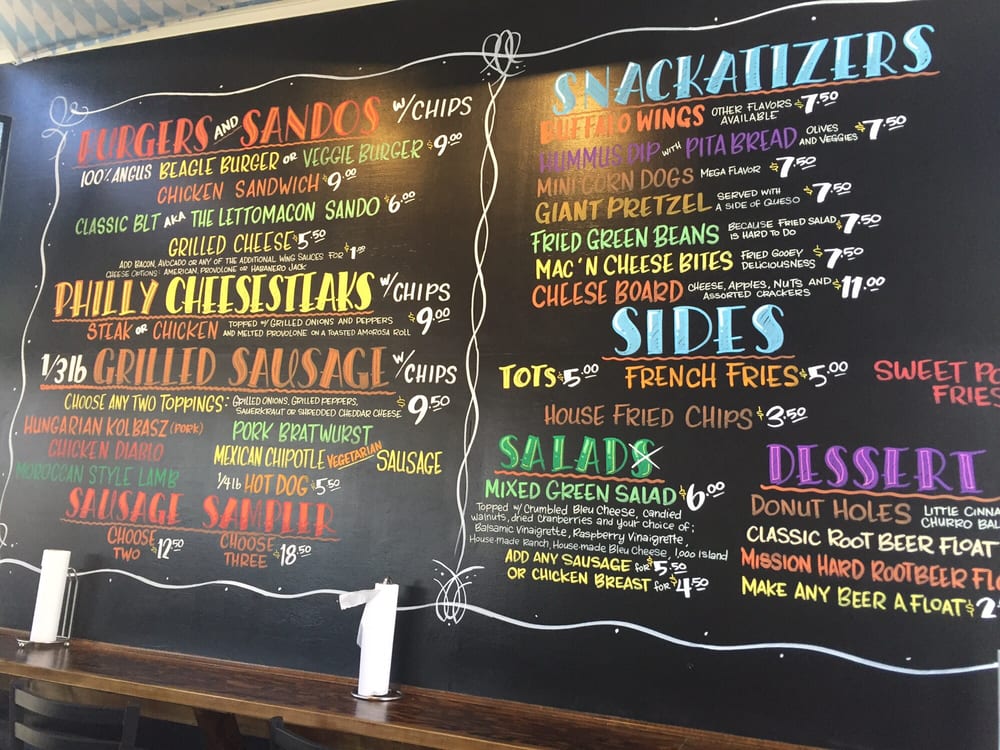 BURGERS AND SANDOS W/ CHIPS
100% ANGUS BEAGLE BURGER OR VEGGIE BURGER $9.00
CHICKEN SANDWICH $9.00
CLASSIC BLT AKA THE LETTOMACON SANDO $6.00
GRILLED CHEESE $5.50
ADD BACON, AVOCADO OR ANY OF THE ADDITIONAL WING SAUCES FOR $1.00
CHEESE OPTIONS: AMERICAN, PROVOLONE OR HABANERO JACK
PHILLY CHEESESTEAKS W/ CHIPS
STEAK OR CHICKEN TOPPED W/ GRILLED ONIONS AND PEPPERS
AND MELTED PROVOLONE ON A TOASTED AMOROSA ROLL $9.00
1/3 lb GRILLED SAUSAGE W/ CHIPS
CHOOSE ANY TWO TOPPINGS: GRILLED ONIONS, GRILLED PEPPERS,
SAUERKRAUT OR SHREDDED CHEDDAR CHEESE $9.50
HUNGARIAN KOLBASZ (PORK)
CHICKEN DIABLO
MOROCCAN STYLE LAMB
PORK BRATWURST
MEXICAN CHIPOTLE VEGETARIAN SAUSAGE
1/4 lb HOT DOG $5.50
SAUSAGE SAMPLER
CHOOSE TWO $12.50
CHOOSE THREE $18.50
SNACKATIZERS
BUFFALO WINGS OTHER FLAVORS AVAILABLE $7.50
HUMMUS DIP WITH PITA BREAD OLIVES AND VEGGIES $7.50
MINI CORN DOGS MEGA FLAVOR $7.50
GIANT PRETZEL SERVED WITH A SIDE OF QUESO $7.50
FRIED GREEN BEANS BECAUSE FRIED SALAD IS HARD TO DO $7.50
MAC 'N CHEESE BITES FRIED GOOEY DELICIOUSNESS $7.50
CHEESE BOARD CHEESE, APPLES, NUTS AND ASSORTED CRACKERS $11.00
SIDES
TOTS $5.00 FRENCH FRIES $5.00 SWEET PO
FRIES
HOUSE FRIED CHIPS $3.50
SALADS
MIXED GREEN SALAD $6.00
Topped w/ Crumbled Bleu Cheese, candied
walnuts, dried Cranberries and your choice of:
Balsamic Vinaigrette, Raspberry Vinaigrette,
House-made Ranch, House-made Bleu Cheese, 1,000 Island
ADD ANY SAUSAGE for $5.50
OR CHICKEN BREAST for $4.50
DESSERT
DONUT HOLES LITTLE CINNA
CHURRO BAL
CLASSIC ROOT BEER FLOAT
MISSION HARD ROOTBEER FLO
MAKE ANY BEER A FLOAT $2